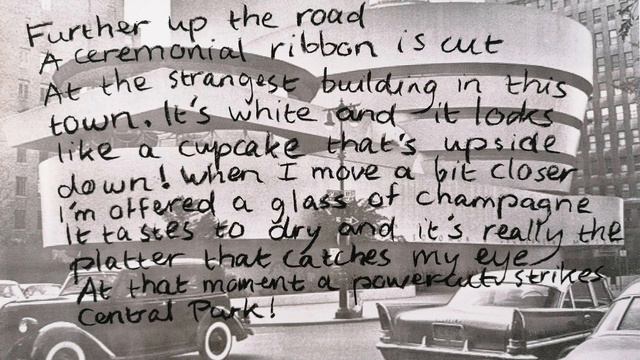 Further up the road
A ceremonial ribbon is cut
At the strangest building in this
town. It's white and it looks
like a cupcake that's upside
down! When I move a bit closer
I'm offered a glass of champagne
It tastes to dry and it's really the
platter that catches my eye
At that moment a powercut strikes
Central Park!